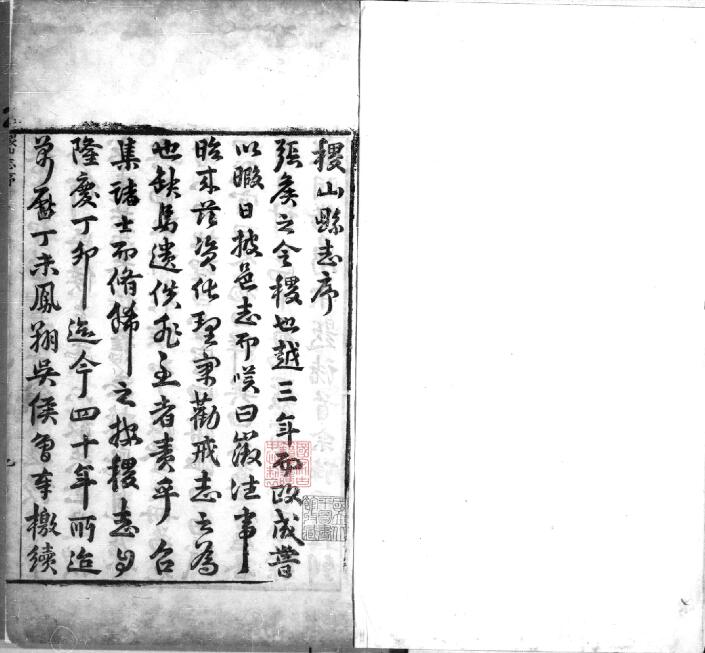 稷山縣志序
張侯之令稷也越三年而政成嘗
以暇日披邑志而嘆曰徵往事
昭來茲資化理寓勸戒志之為
也缺焉遺佚非主者責乎合
集諸士而脩緝之按稷志自
隆慶丁卯迄今四十年所迨
萬曆丁未鳳翔吳侯曾奉檄續